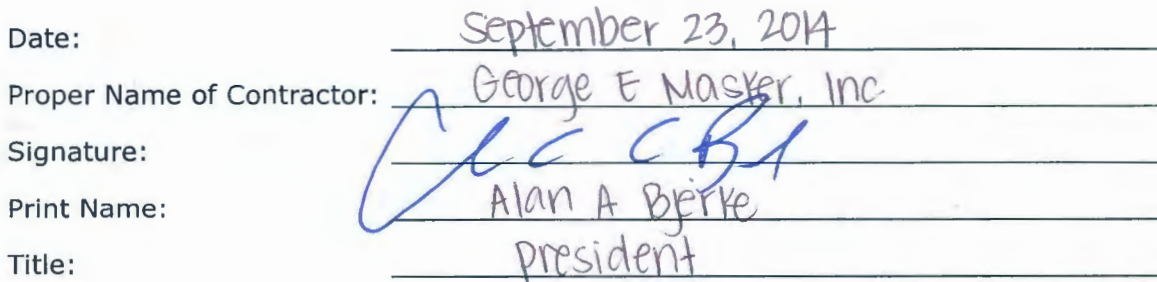 Date: September 23, 2014
Proper Name of Contractor: George E Masker, Inc
Signature:
Print Name: Alan A Bjerke
Title: president